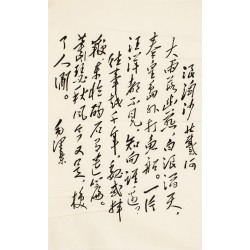 浪淘沙 北戴河
大雨落幽燕,白浪滔天,
秦皇島外打魚船。一片
汪洋都不見,知向誰邊?
往事越千年,魏武揮
鞭,東臨碣石有遺篇。
蕭瑟秋風今又是,換
了人間。
毛澤東